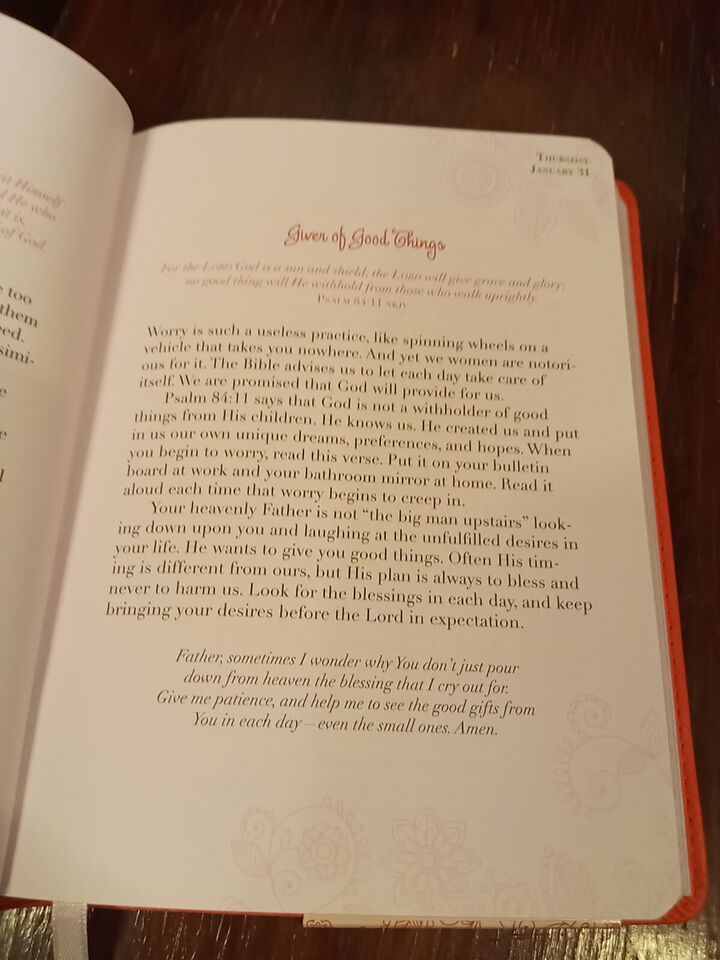 it Himself
d He who
it is,
of God.
too
them
ed.
simi-
e
e
l
Thursday,
January 31
Giver of Good Things
For the Lord God is a sun and shield; the Lord will give grace and glory;
no good thing will He withhold from those who walk uprightly.
Psalm 84:11 nkjv
Worry is such a useless practice, like spinning wheels on a
vehicle that takes you nowhere. And yet we women are notori-
ous for it. The Bible advises us to let each day take care of
itself. We are promised that God will provide for us.
Psalm 84:11 says that God is not a withholder of good
things from His children. He knows us. He created us and put
in us our own unique dreams, preferences, and hopes. When
you begin to worry, read this verse. Put it on your bulletin
board at work and your bathroom mirror at home. Read it
aloud each time that worry begins to creep in.
Your heavenly Father is not “the big man upstairs” look-
ing down upon you and laughing at the unfulfilled desires in
your life. He wants to give you good things. Often His tim-
ing is different from ours, but His plan is always to bless and
never to harm us. Look for the blessings in each day, and keep
bringing your desires before the Lord in expectation.
Father, sometimes I wonder why You don’t just pour
down from heaven the blessing that I cry out for.
Give me patience, and help me to see the good gifts from
You in each day—even the small ones. Amen.